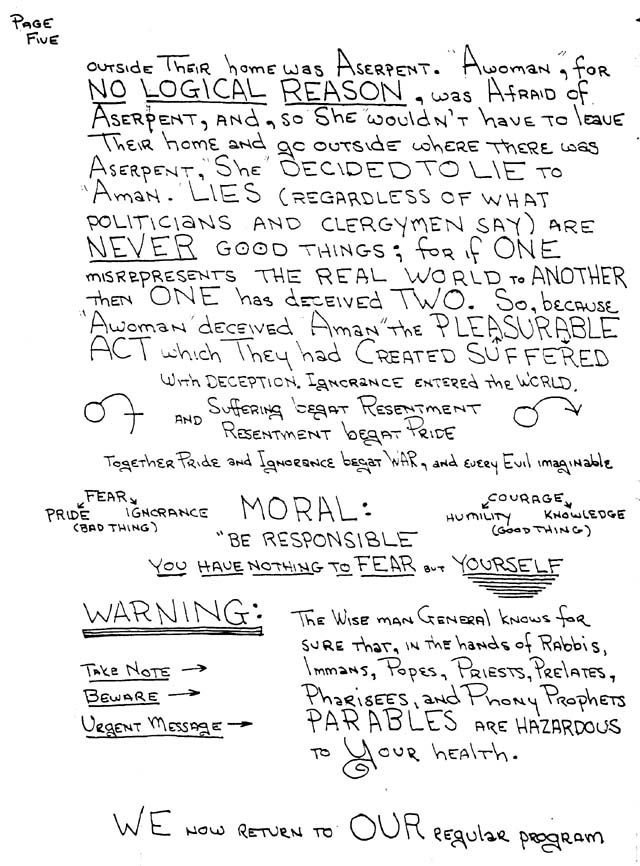 PAGE
FIVE
OUTSIDE THEIR home WAS ASERPENT. "AWOMAN", foR
NO LOGICAL REASON, WAS AfRAID of
ASERPENT, AND, SO SHE WOULDN'T HAVE TO LEAVE
THEIR home AND GO OUTSIDE WHERE THERE WAS
ASERPENT, "SHE" DECIDED TO LIE TO
"AMAN." LIES (REGARDLESS OF WHAT
POLITICIANS AND CLERGYMEN SAY) ARE
NEVER GOOD THINGS; foR if ONE
MISREPRESENTS THE REAL WORLD to ANOTHER
THEN ONE has DECEIVED TWO. So, BECAUSE
"AWOMAN" DECEIVED "AMAN" the PLEASURABLE
ACT which They had CREATED SUFFERED
With DECEPTION, IGNORANCE ENTERED the WORLD.
Suffering begAT RESENTMENT
AND
RESENTMENT begAT PRIDE
TOGETHER PRIDE AND IGNORANCE begAT WAR, AND EVERY EVIL imaginable
FEAR
PRIDE IGNORANCE
(BAD THING)
MORAL:
COURAGE
HUMILITY KNOWLEDGE
(GOOD THING)
"BE RESPONSIBLE
YOU HAVE NOTHING TO FEAR BUT YOURSELF
WARNING:
TAKE NOTE →
BEWARE →
URGENT MESSAGE →
THE WISE MAN GENERAL KNOWS foR
SURE THAT, IN THE hANDS of RABBIS,
IMMANS, POPES, PRIESTS, PRELATES,
PHARISEES, AND PHONY PROPHETS
PARABLES ARE HAZARDOUS
TO YOUR hEALTH.
WE NOW RETURN TO OUR REGULAR PROGRAM